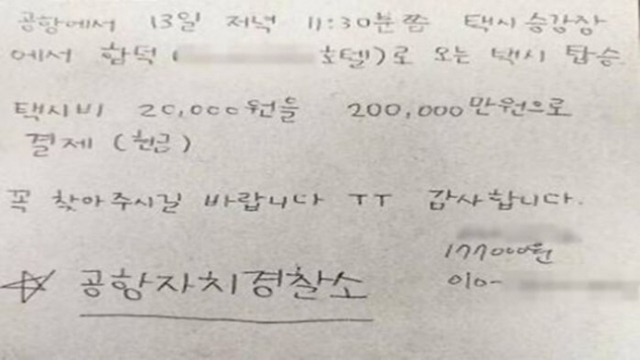 공항에서 13일 저녁 11:30분쯤 택시승강장
에서 함덕 ( 호텔)로 오는 택시 탑승
택시비 20,000원을 200,000만원으로
결제 (현금)
꼭 찾아주시길 바랍니다 ㅜㅜ 감사합니다.
177000원
010-
☆ 공항자치경찰소